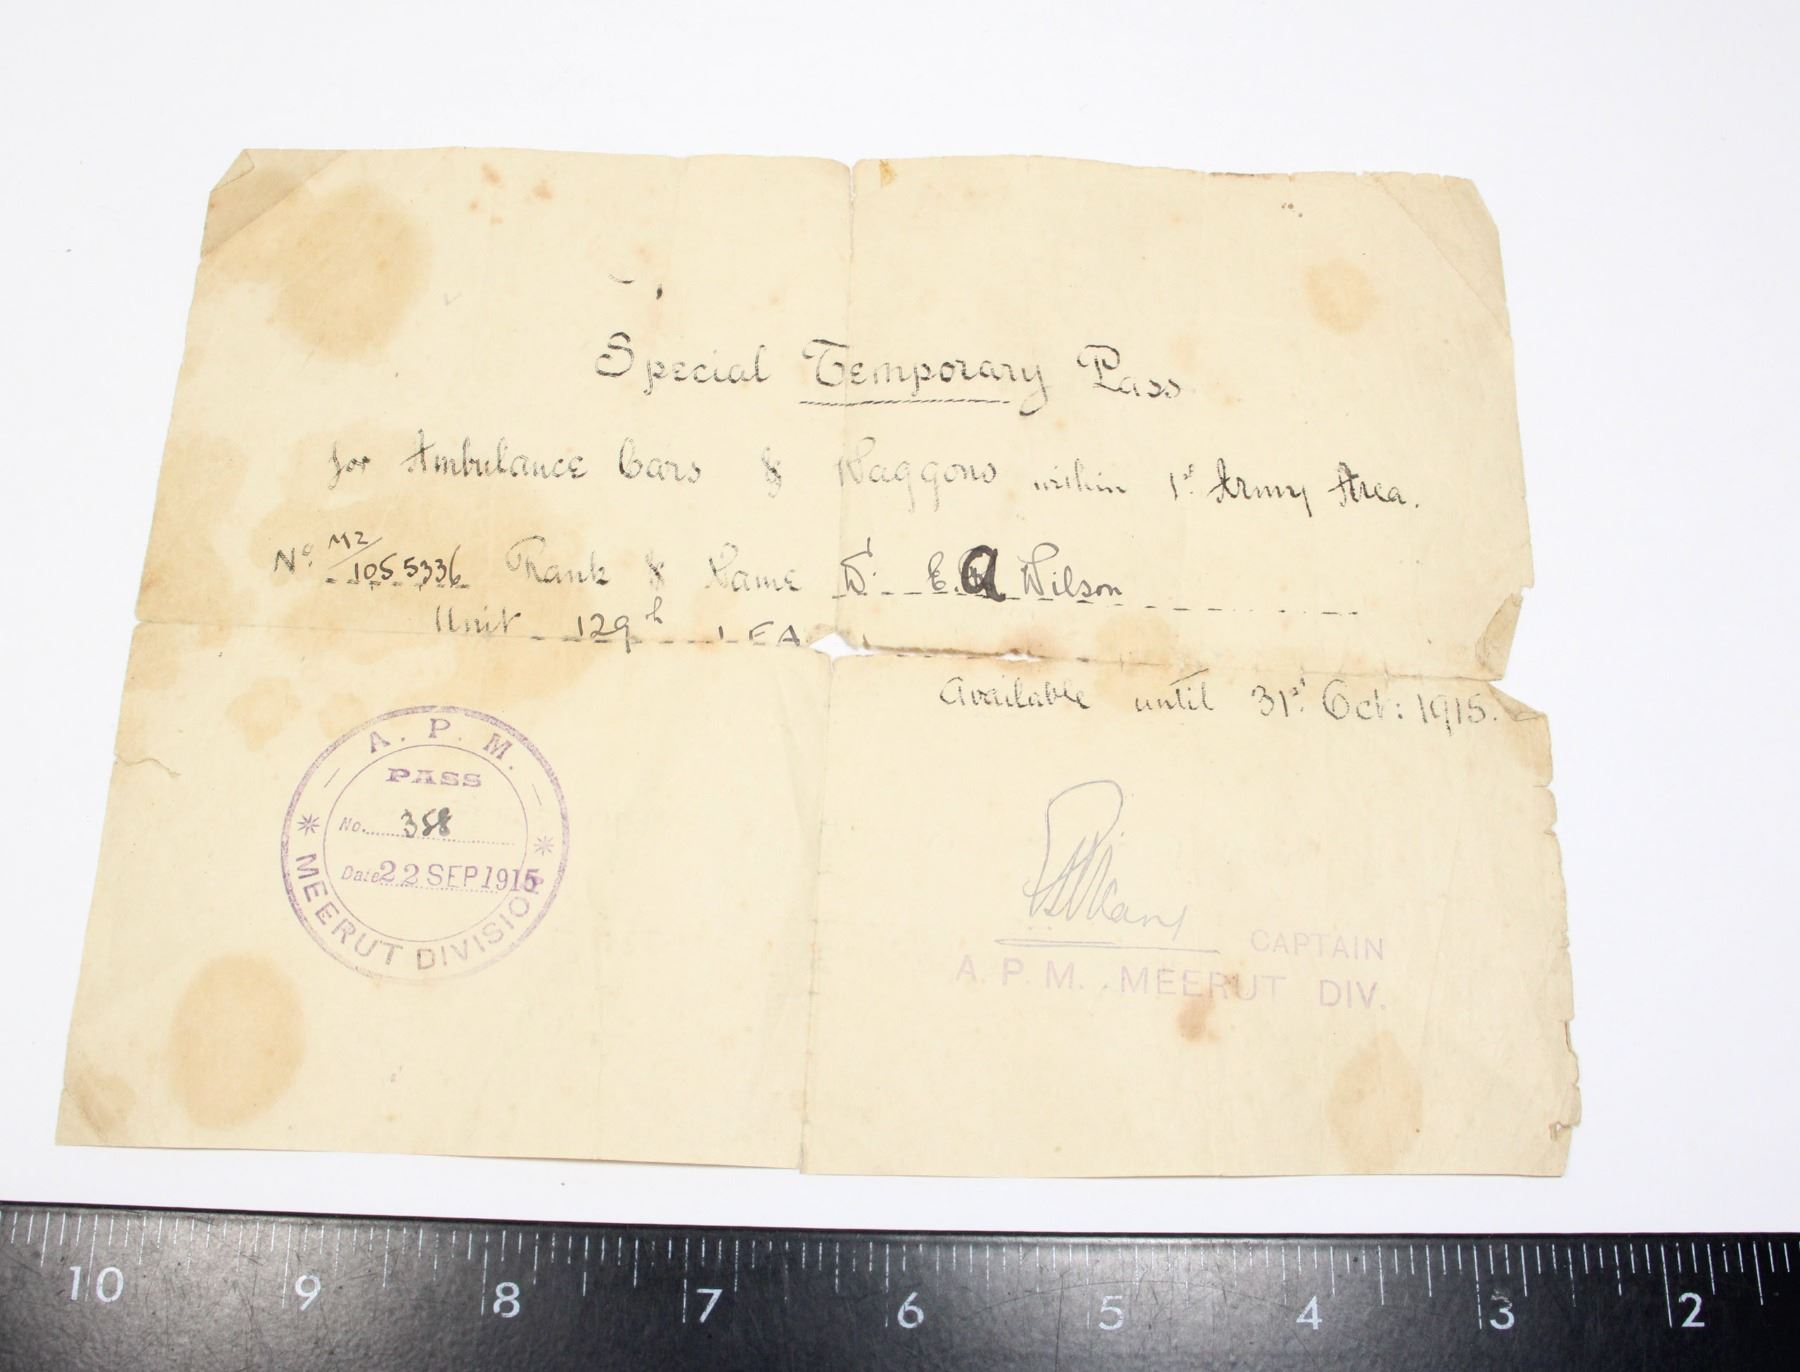 Special Temporary Pass
for Ambulance Cars & Waggons within 1st Army Area.
No. M2/1055336 Rank & Name E. A Wilson
Unit 129th I F A
Available until 31st Oct: 1915.
A. P. M.
PASS
No. 358
Date 22 SEP 1915
MEERUT DIVISION
CAPTAIN
A. P. M. MEERUT DIV.
10 9 8 7 6 5 4 3 2